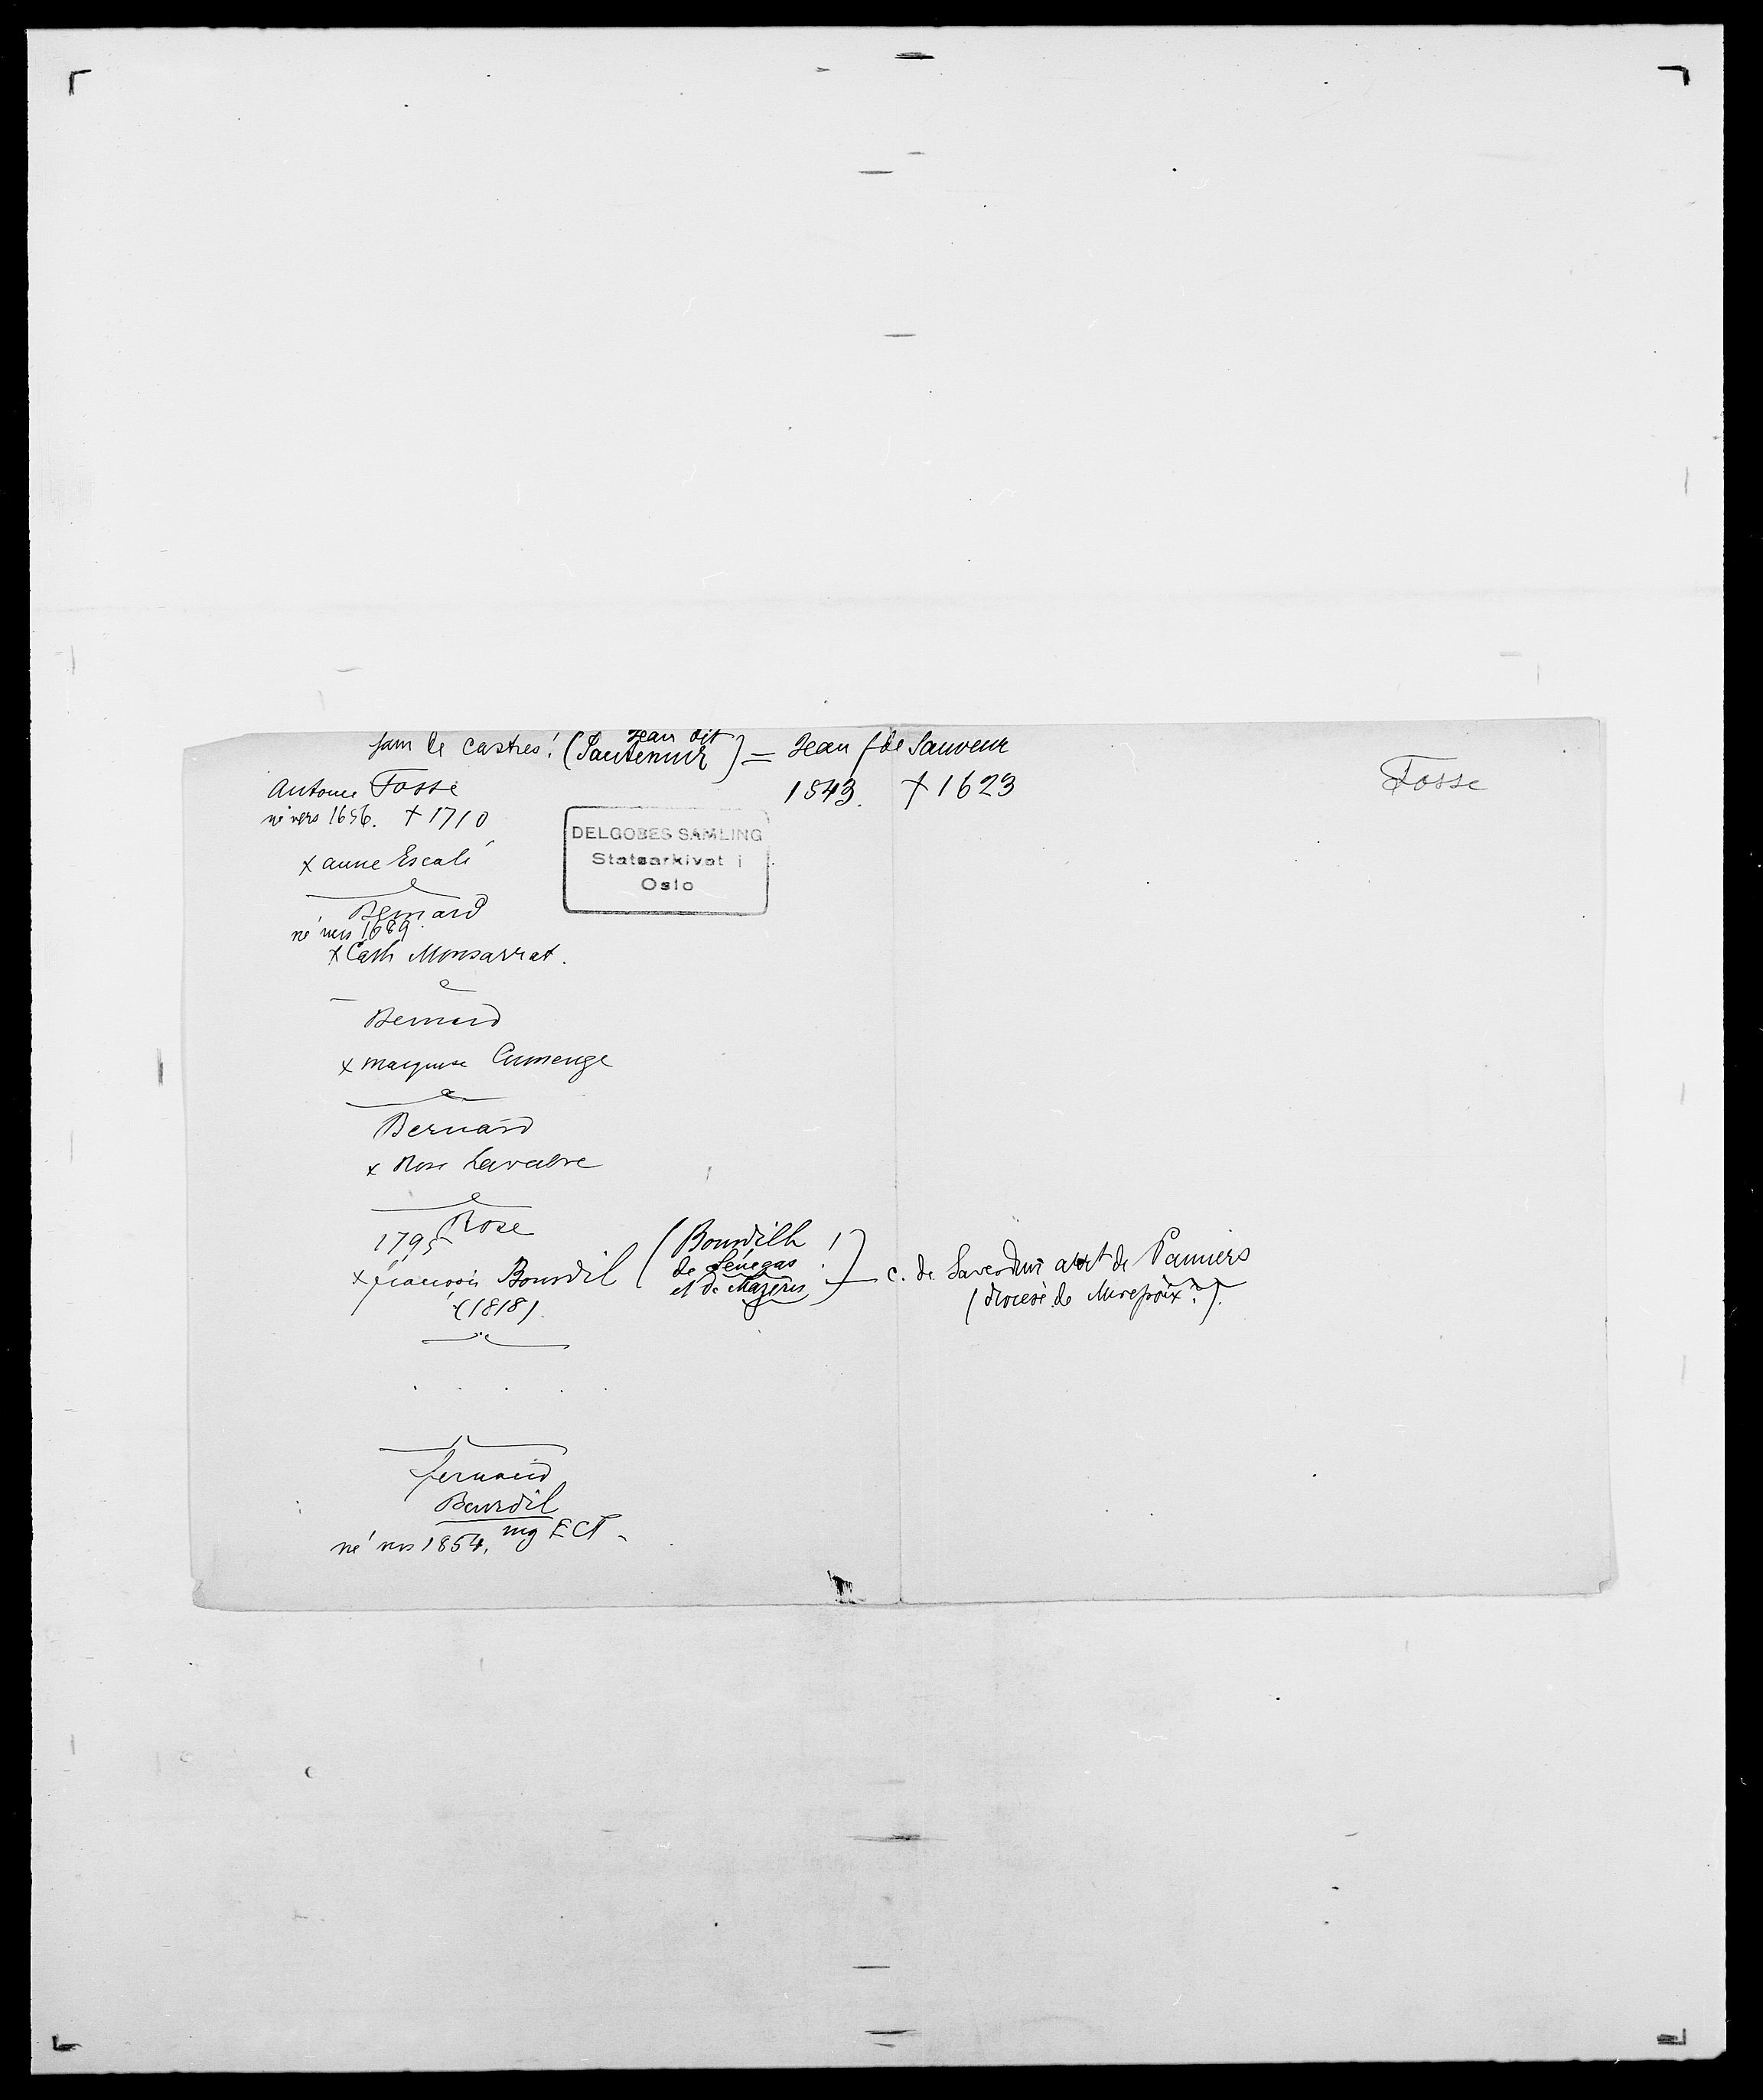 fam de Castres! (Jean dit Sautenuir) = Jean f de Sauveur
1543. † 1623
Fosse
Antoine Fosse
né vers 1656. † 1710
DELGOBES SAMLING
Statsarkivet i
Oslo
x Anne Escalé
Bernard
né vers 1689
x Cath Monsarrat.
Bernard
x Marquise Cumenge
Bernard
x Rose Lavabre
Rose
1795
x François Bourdil (Bourdilh !
de Sénégas
et de Mazères) c. de Saverdun arrt de Pamiers
(diocèse de Mirepoix ?).
x (1818)
Fernand
Bourdil
né vers 1854. ing ECP